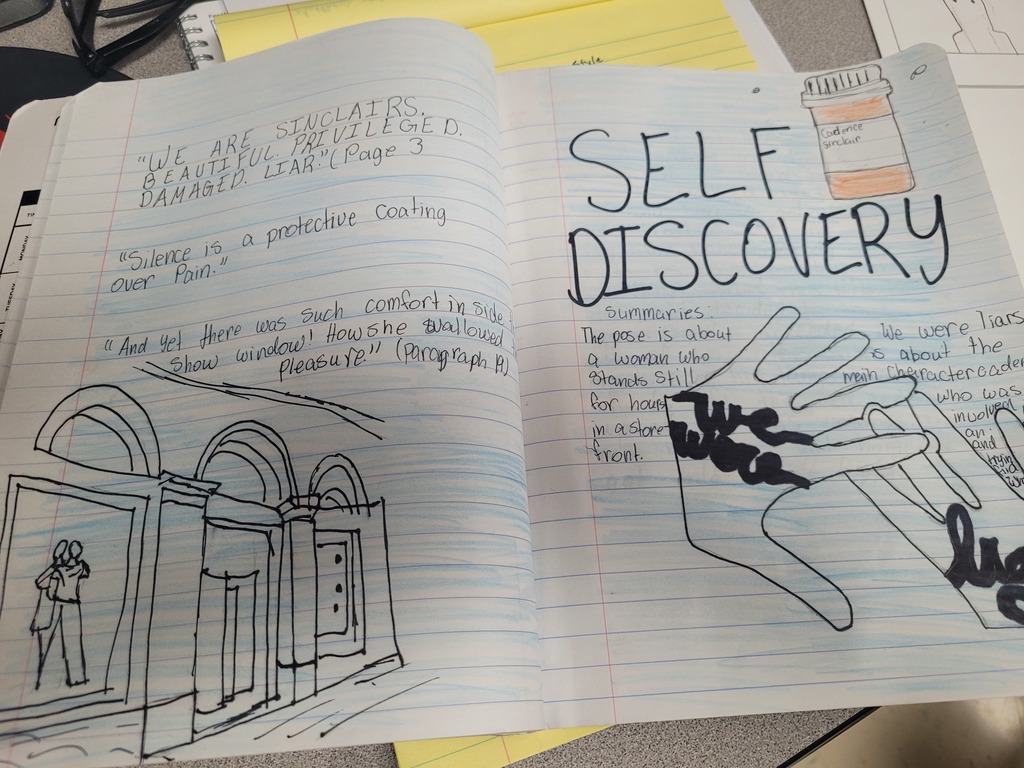 "WE ARE SINCLAIRS.
BEAUTIFUL. PRIVILEGED.
DAMAGED. LIAR." (Page 3
"Silence is a protective coating
over Pain."
"And yet there was such comfort in side
show window! How she swallowed
pleasure." (Paragraph 19)
Style
SELF
DISCOVERY
Cadence
Sinclair
Summaries:
The pose is about
a woman who
Stands still
for hours
in a store
front.
We were liars
is about the
main character caden
who was
involved
an
and
We
were